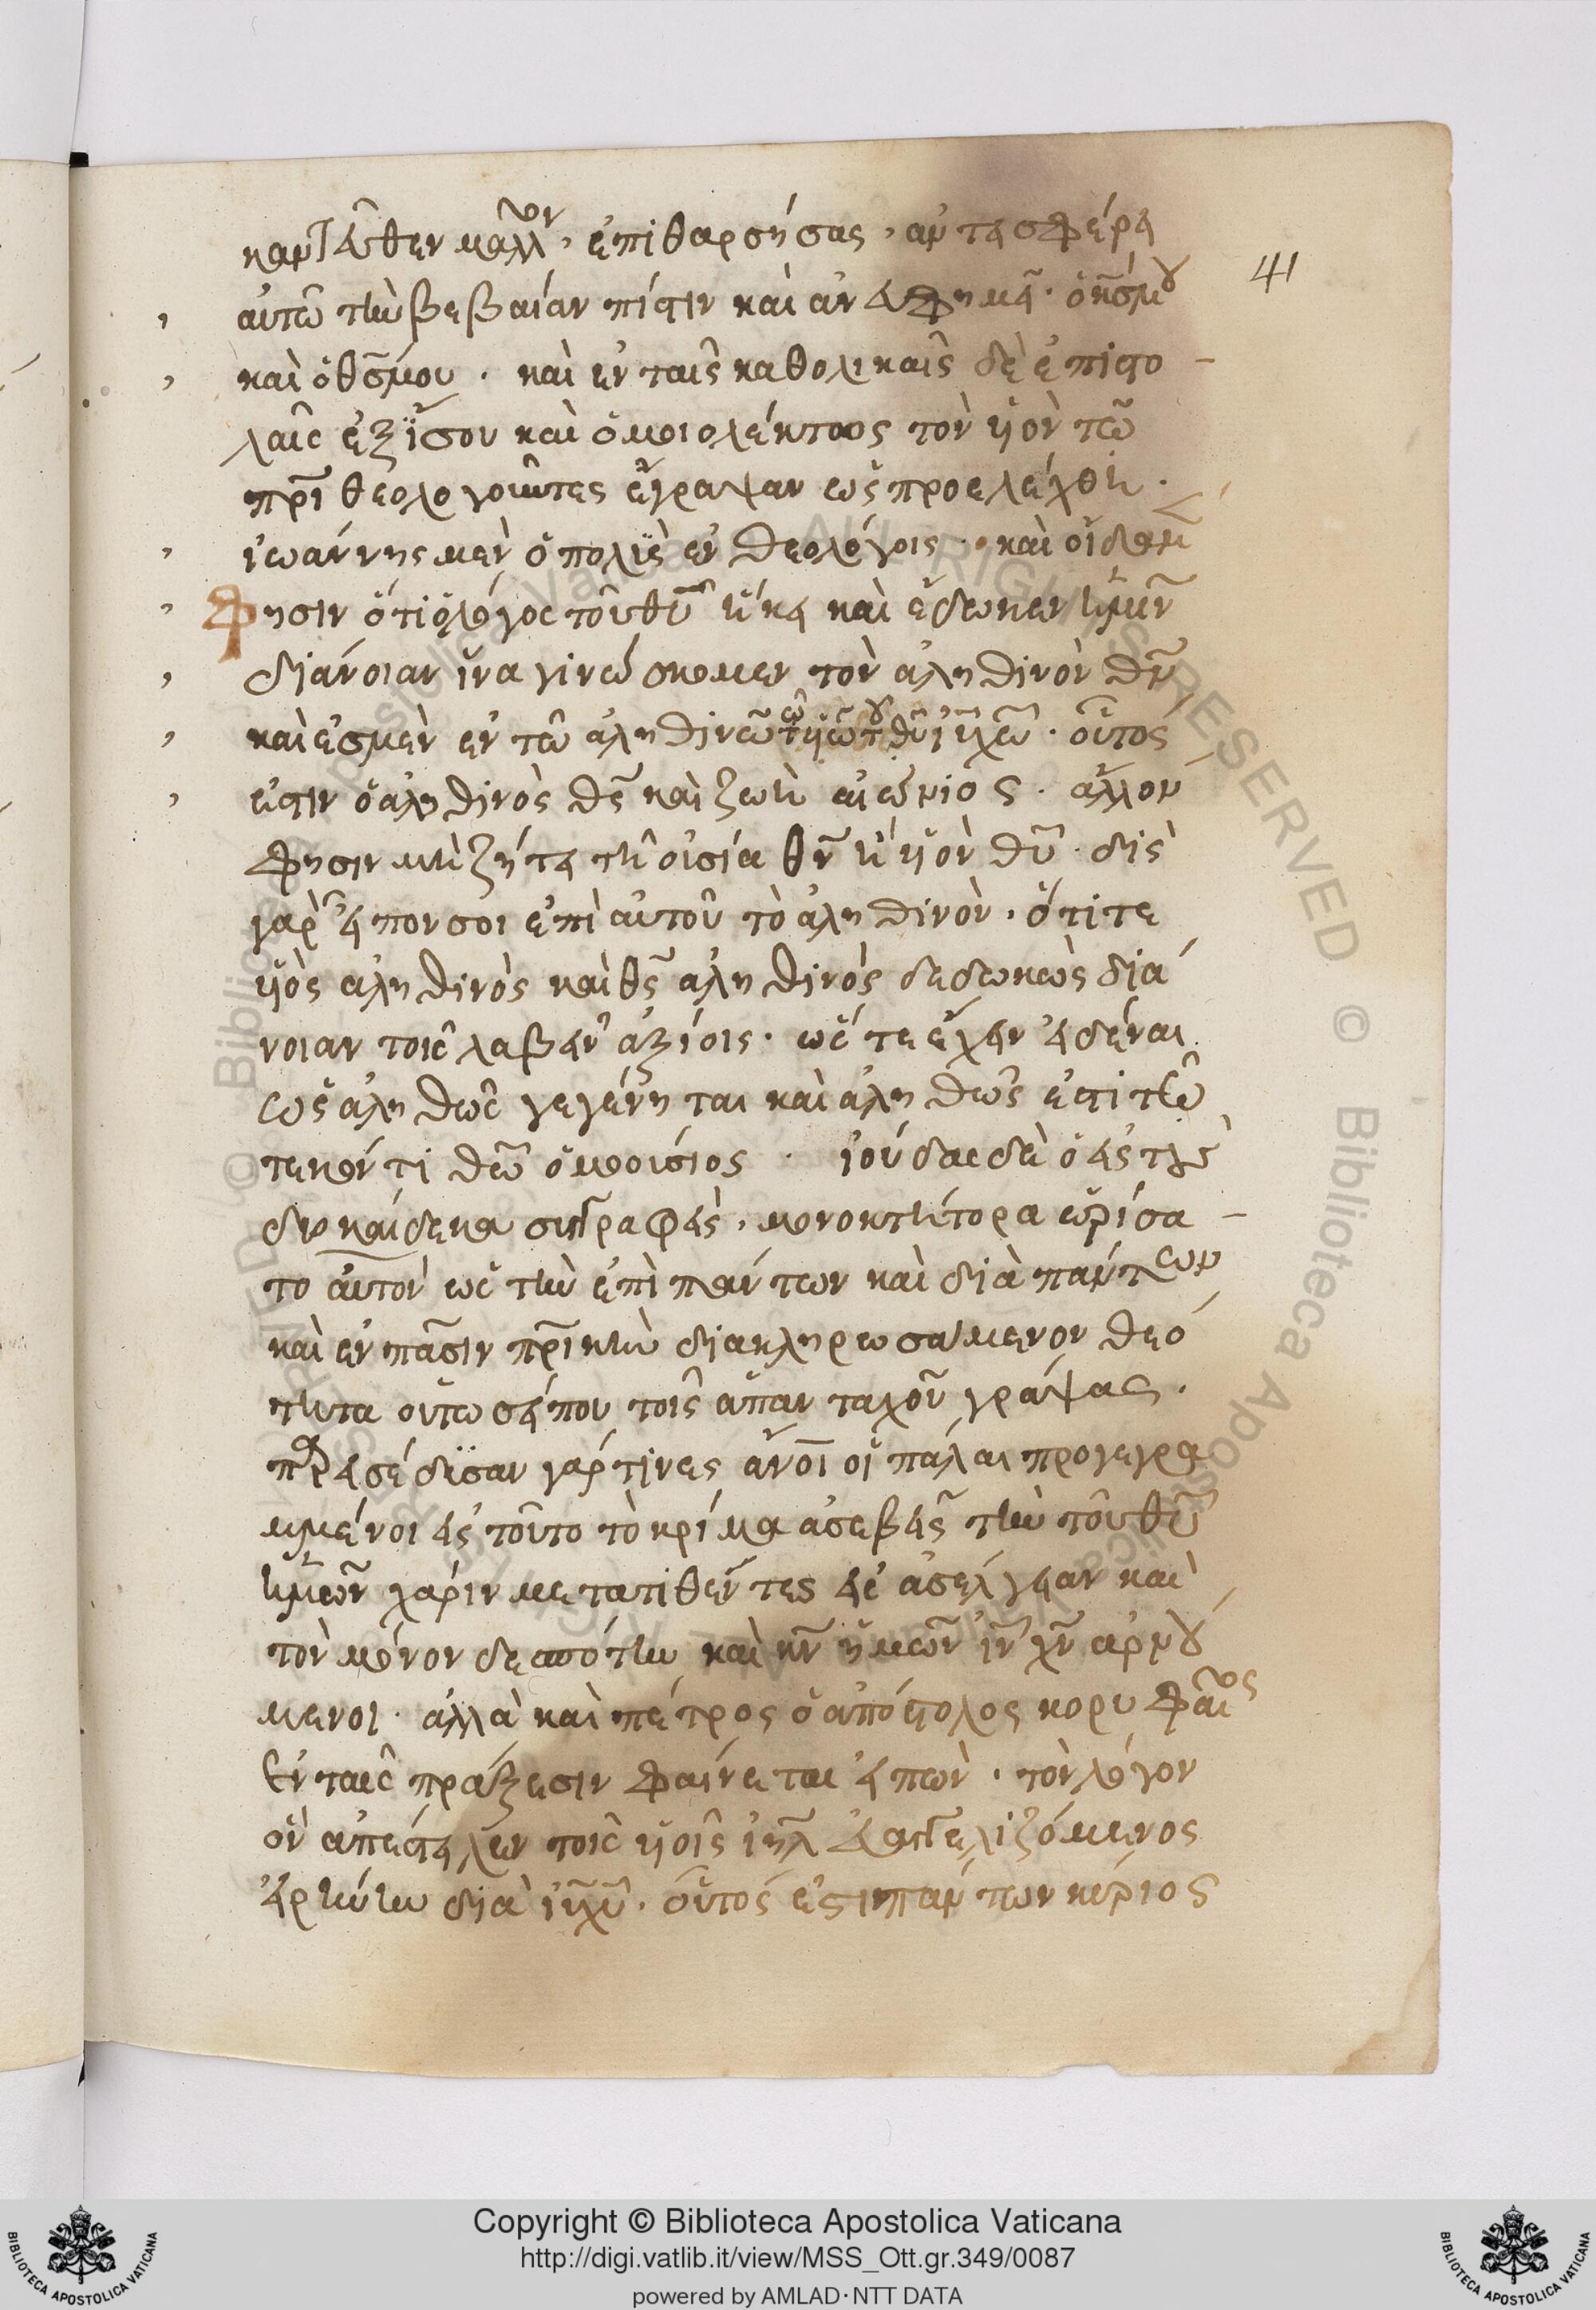 41
κἀντεῦθεν μᾶλλον, ἐπιθαρσήσας, ἀντεισφέρει
αὐτῶ τὴν βεβαίαν πίστιν καὶ ἀνευφημεῖ· ὁ κς μου
καὶ ὁ θς μου· καὶ ἐν ταῖς καθολικαῖς δὲ ἐπιστο-
λαῖς ἐξίσου καὶ ὁμοιολέκτως τὸν υἱὸν τῶ
πρι θεολογοῦντες ἔγραψαν ὡς προελέχθη.
ἰωάννης μὲν ὁ πολὺς ἐν θεολόγοις· καὶ οἴδαμεν
φησιν ὅτι ὁ λόγος τοῦ θυ ἥκει καὶ ἔδωκεν ἡμῖν
διάνοιαν ἵνα γινώσκομεν τὸν ἀληθινὸν θν
καὶ ἐσμὲν ἐν τῶ ἀληθινῶ τῶ υἱῶ τοῦ θυ ιυ χω· οὗτός
ἐστιν ὁ ἀληθινὸς θς καὶ ζωὴ αἰώνιος· ἄλλον
φησιν μὴ ζήτει τῆ οὐσία θν ἢ υἱὸν θυ· δὶς
γὰρ εἶπον σοι ἐπὶ αὐτοῦ τὸ ἀληθινὸν, ὅτι τε
υἱὸς ἀληθινὸς καὶ θς ἀληθινὸς δεδωκὼς διά
νοιαν τοῖς λαβεῖν ἀξίοις· ὥς τε ἔχειν εἰδέναι
ὡς ἀληθῶς γεγένηται καὶ ἀληθῶς ἐστι τῶ
τεκόντι θῶ ὁμοούσιος · ἰούδας δὲ ὁ εἰς τὰς
δυοκαίδεκα συγγραφεὶς, μονοκτήτορα ὡρίσα-
το αὐτὸν ὡς τὴν ἐπὶ πάντων καὶ διὰ πάντων
καὶ ἐν πᾶσιν πρικὴν διακληρωσάμενον θεό
τητα οὕτωσείπου τοῖς ἁπανταχοῦ γράψας.
παρεισέδυσαν γάρ τινες ανοι οἱ πάλαι προγεγρα
μμένοι εἰς τοῦτο τὸ κρίμα ἀσεβεῖς τὴν τοῦ θυ
ἡμῶν χάριν μετατιθέντες εἰς ἀσέλγειαν καὶ
τὸν μόνον δεσπότην καὶ κν ἡμῶν ιν χν ἀρνού
μενοι· ἀλλὰ καὶ πέτρος ὁ ἀπόστολος κορυφαῖος
ἐν ταῖς πράξεσιν φαίνεται εἰπὼν· τὸν λόγον
ὃν ἀπέστειλεν τοῖς υἱοῖς ιηλ εὐαγγελιζόμενος
εἰρήνην διὰ ιυ χυ· οὗτός ἐστι πάντων κύριος
Copyright © Biblioteca Apostolica Vaticana
http://digi.vatlib.it/view/MSS_Ott.gr.349/0087
powered by AMLAD·NTT DATA